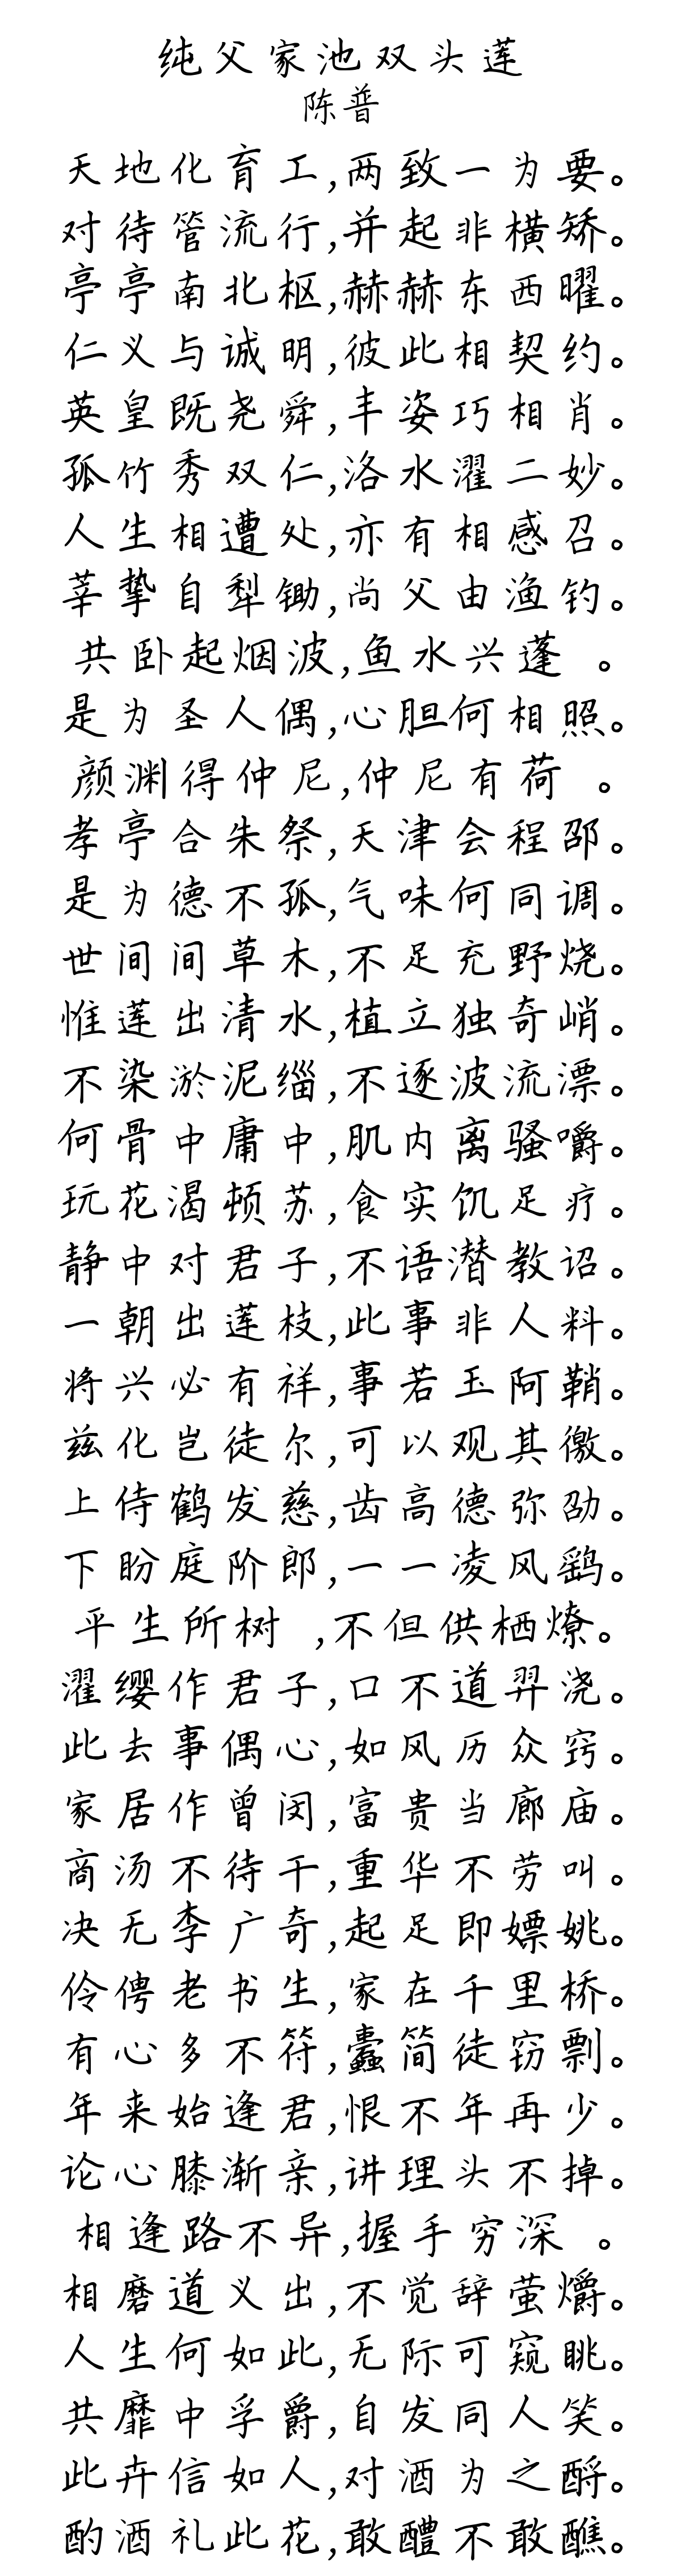 纯父家池双头莲
陈普
天地化育工,两致一为要。
对待管流行,并起非横矫。
亭亭南北枢,赫赫东西曜。
仁义与诚明,彼此相契约。
英皇既尧舜,丰姿巧相肖。
孤竹秀双仁,洛水濯二妙。
人生相遭处,亦有相感召。
莘挚自犁锄,尚父由渔钓。
共卧起烟波,鱼水兴蓬 。
是为圣人偶,心胆何相照。
颜渊得仲尼,仲尼有荷 。
孝亭合朱祭,天津会程邵。
是为德不孤,气味何同调。
世间间草木,不足充野烧。
惟莲出清水,植立独奇峭。
不染淤泥缁,不逐波流漂。
何骨中庸中,肌内离骚嚼。
玩花渴顿苏,食实饥足疗。
静中对君子,不语潜教诏。
一朝出莲枝,此事非人料。
将兴必有祥,事若玉阿鞘。
兹化岂徒尔,可以观其徼。
上侍鹤发慈,齿高德弥劭。
下盼庭阶郎,一一凌风鹞。
平生所树 ,不但供栖燎。
濯缨作君子,口不道羿浇。
此去事偶心,如风历众窍。
家居作曾闵,富贵当廊庙。
商汤不待干,重华不劳叫。
决无李广奇,起足即嫖姚。
伶俜老书生,家在千里桥。
有心多不符,蠹简徒窃剽。
年来始逢君,恨不年再少。
论心膝渐亲,讲理头不掉。
相逢路不异,握手穷深 。
相磨道义出,不觉辞萤爝。
人生何如此,无际可窥眺。
共靡中孚爵,自发同人笑。
此卉信如人,对酒为之酹。
酌酒礼此花,敢醴不敢醮。